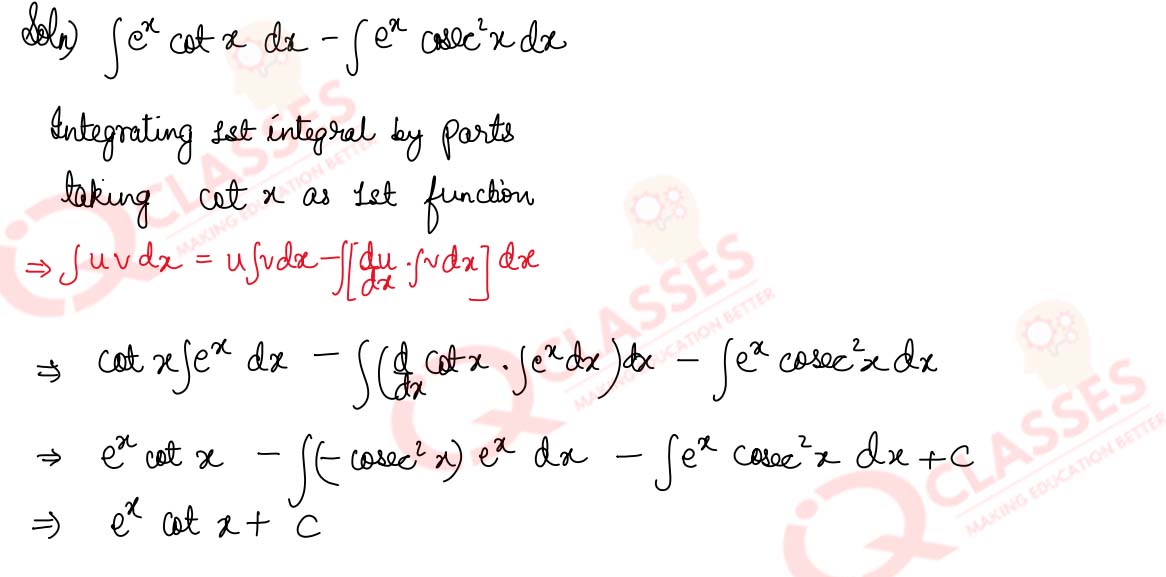 Soln) ∫eˣ cot x dx − ∫eˣ cosec²x dx
Integrating 1st integral by parts
taking cot x as 1st function
⇒ ∫u v dx = u∫v dx − ∫[du/dx . ∫v dx] dx
⇒ cot x∫eˣ dx − ∫(d/dx cot x . ∫eˣ dx) dx − ∫eˣ cosec²x dx
⇒ eˣ cot x − ∫(−cosec² x) eˣ dx − ∫eˣ cosec²x dx + C
⇒ eˣ cot x + C
IQ CLASSES
MAKING EDUCATION BETTER
IQ CLASSES
MAKING EDUCATION BETTER
IQ CLASSES
MAKING EDUCATION BETTER